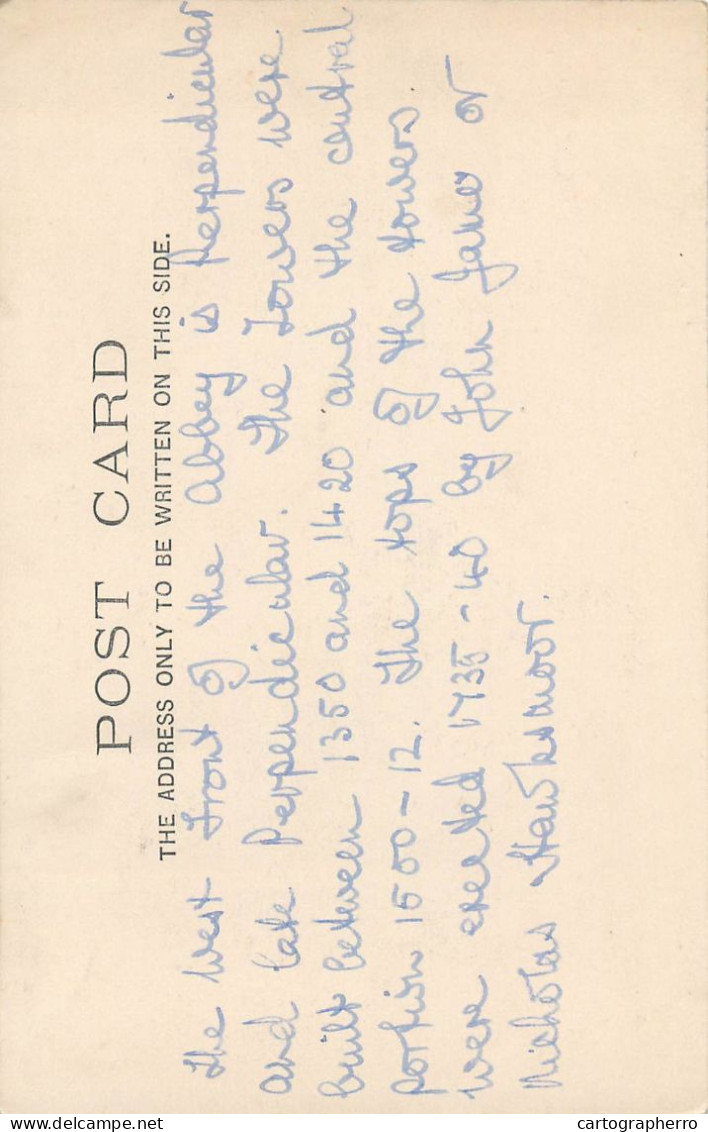 POST CARD
THE ADDRESS ONLY TO BE WRITTEN ON THIS SIDE.
The West Front of the Abbey is Perpendicular
and late Perpendicular. The Towers were
built between 1350 and 1420 and the central
portion 1500-12. The tops of the towers
were erected 1735-40 by John James or
Nicholas Hawksmoor.
www.delcampe.net
cartographerro